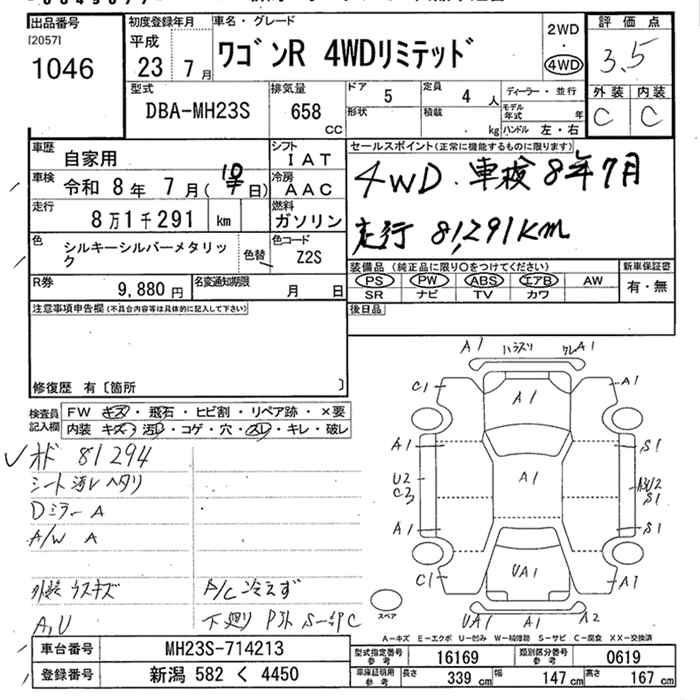 出品番号
[2057]
1046
初度登録年月
平成
23 7 月
車名・グレード
ワゴンR 4WDリミテッド
2WD
・
4WD
評価点
3.5
外装 内装
C C
型式
DBA-MH23S
排気量
658 CC
ドア 5
形状
定員 4 人
積載 kg
ディーラー・並行
モデル年式 年
ハンドル 左・右
車歴 自家用
シフト IAT
車検 令和 8年 7月( 日)
冷房 AAC
走行 8万1千291 km
燃料 ガソリン
色 シルキーシルバーメタリック
色替
色コード Z2S
R券 9,880 円
名変通知期限 月 日
セールスポイント(正常に機能するものに限ります)
4WD.車検8年7月
走行 81,291KM
装備品 (純正品に限り○をつけてください)
PS PW ABS エアB AW
SR ナビ TV カワ
新車保証書
有・無
後日品
注意事項申告欄(不具合内容等は具体的に記入して下さい)
修復歴 有〔箇所 〕
検査員記入欄
FW キズ・飛石・ヒビ割・リペア跡・×要
内装 キズ・汚レ・コゲ・穴・スレ・キレ・破レ
✓オド 81294
シート汚レヘタリ
Dミラー A
A/W A
外装 ウスキズ
A,U
A/C 冷えず
下廻り Pタト S一部C
A1 ハラズリ クレA1
C1 A1 A1
A1 S1
U2 C3 A1 S1
A1 S1
C1 UA1 A1
スペア UA1 A1 A2
A-キズ E-エクボ U-凹み W-補修跡 S-サビ C-腐食 XX-交換済
車台番号 MH23S-714213
登録番号 新潟 582 く 4450
型式指定番号 参考 16169
類別区分番号 参考 0619
車庫証明用 参考 長さ 339 cm 幅 147 cm 高さ 167 cm